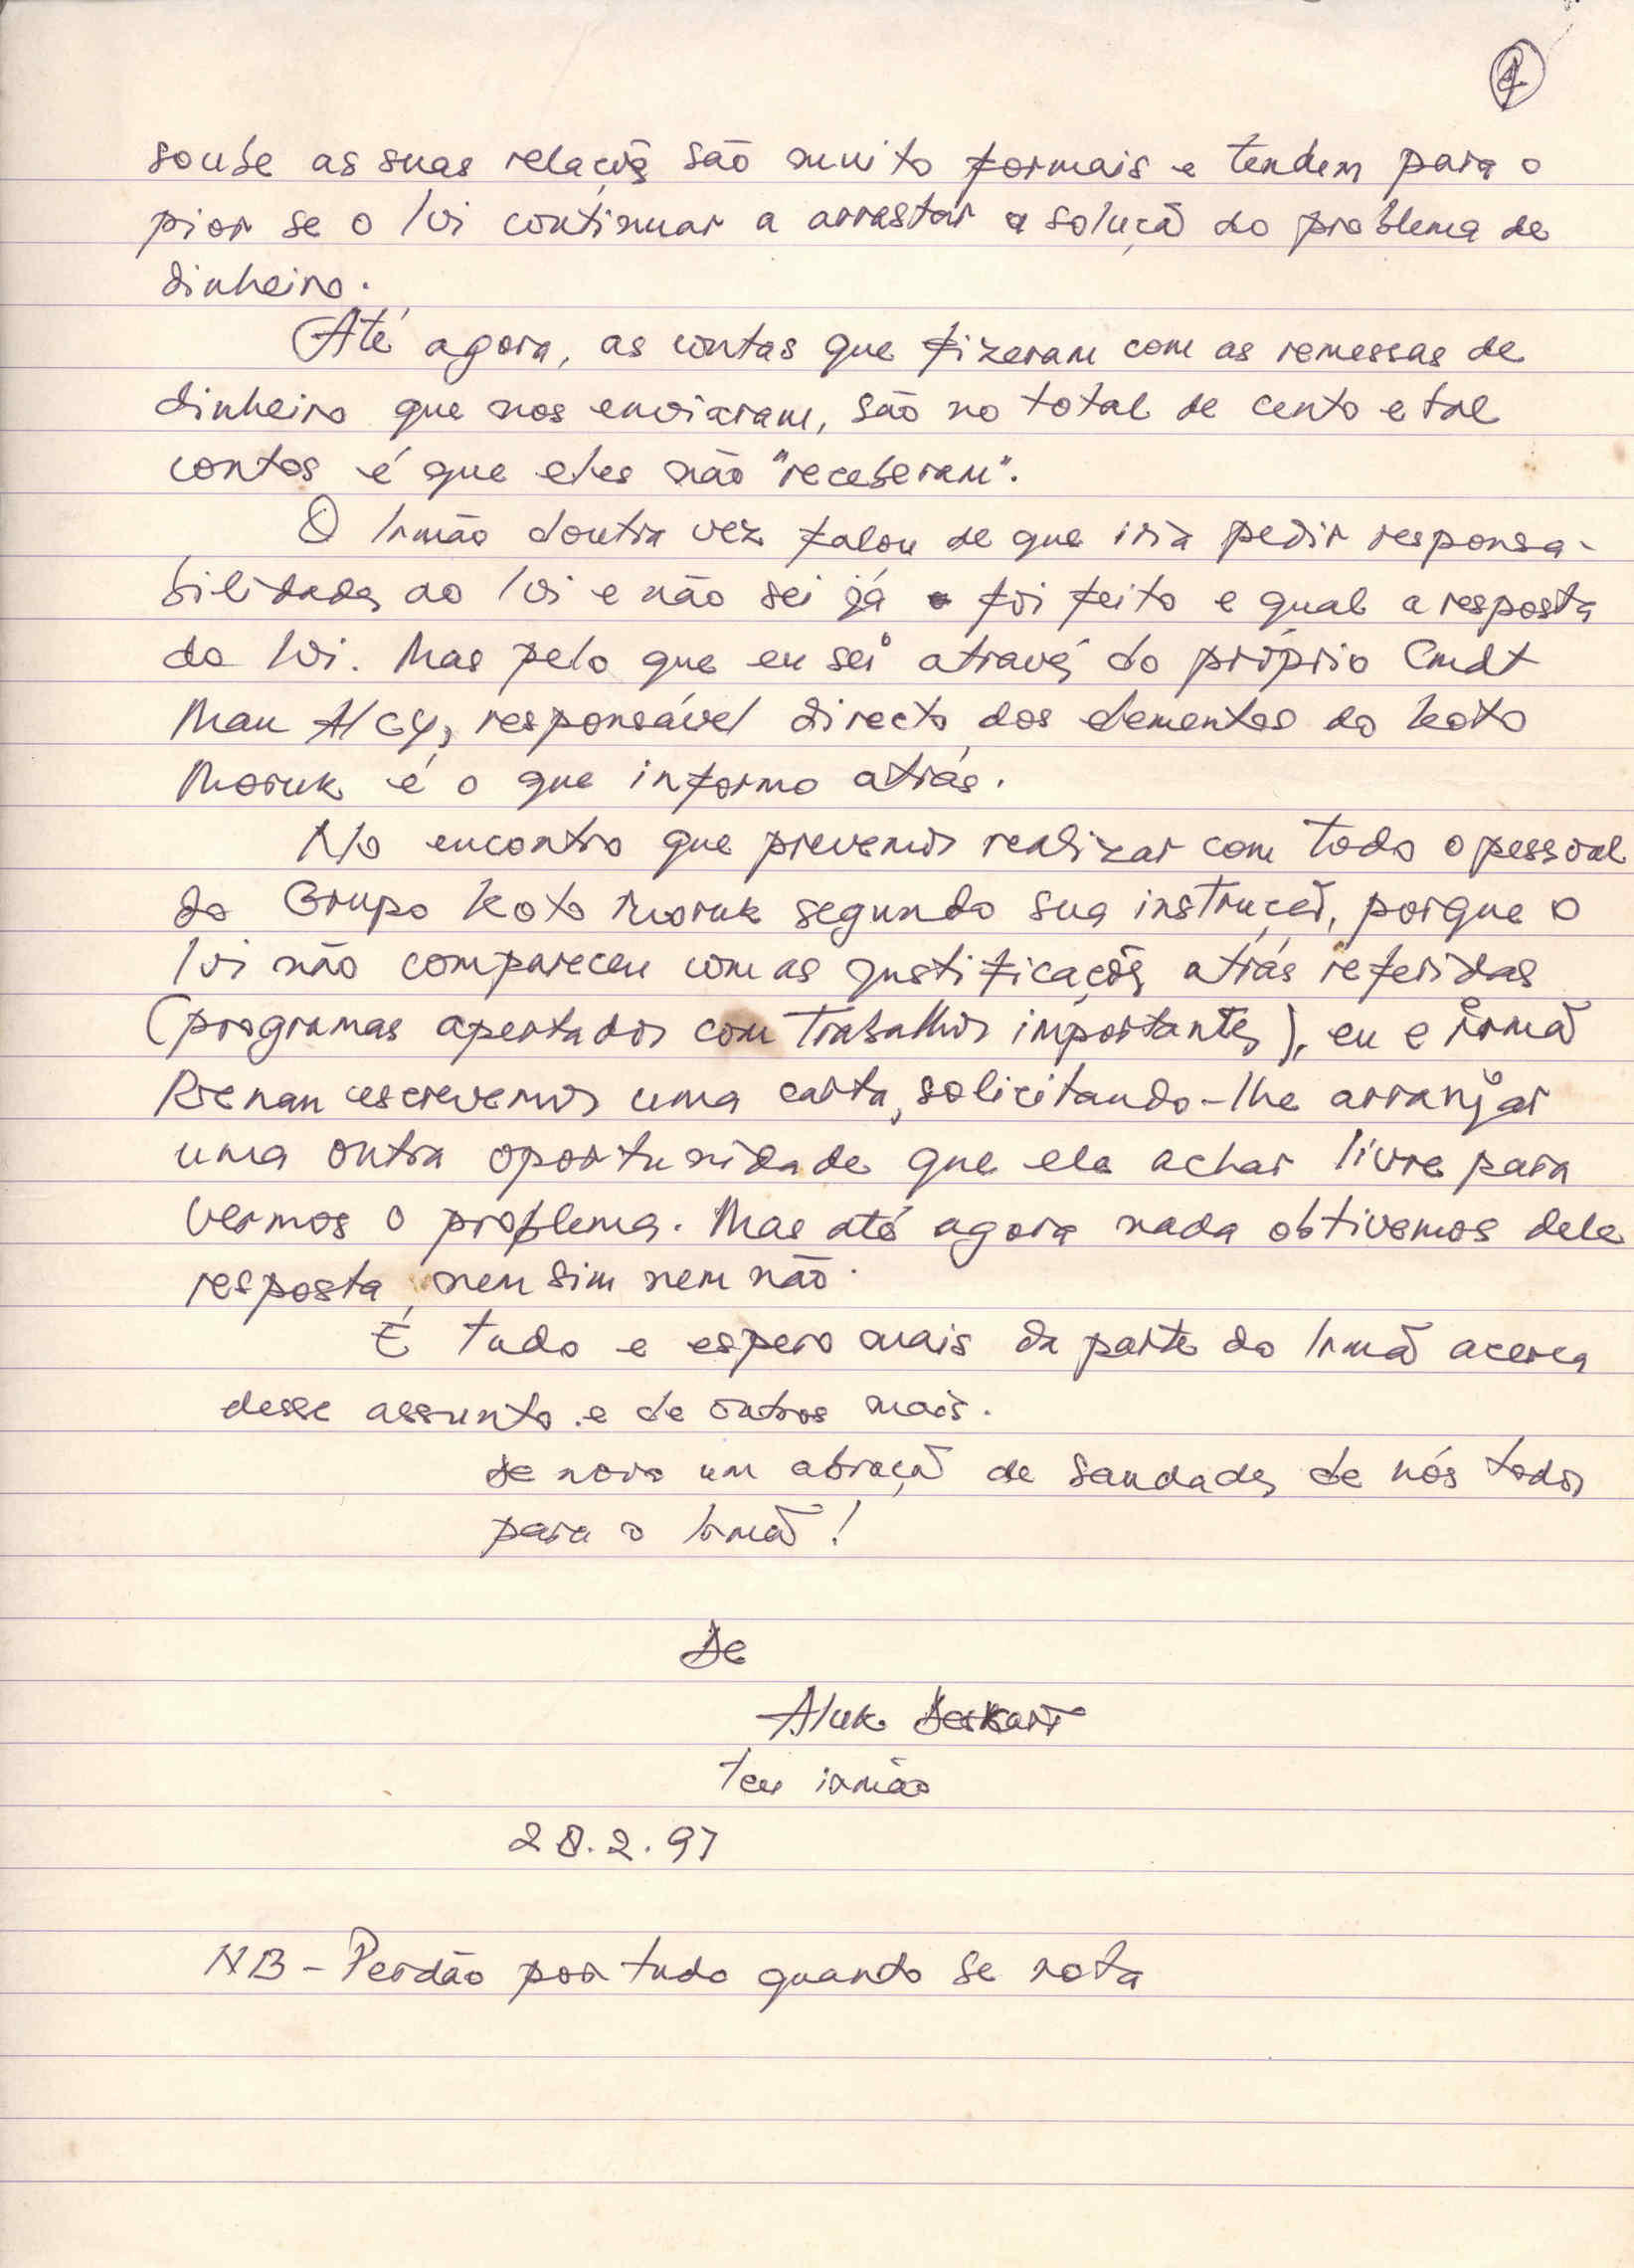 4
soube as suas relações são muito formais e tendem para o
pior se o Ivi continuar a arrastar a solução do problema de
dinheiro.
Até agora, as contas que fizeram com as remessas de
dinheiro que nos enviaram, são no total de cento e tal
contos é que eles não "receberam".
O Irmão doutra vez falou de que iria pedir responsa-
bilidades ao Ivi e não sei já foi feito e qual a resposta
do Ivi. Mas pelo que eu sei através do próprio Cmdt
Mau Alcy, responsável directo dos elementos do koto
Moruk é o que informo atrás.
No encontro que prevemos realizar com todo o pessoal
do Grupo Koto Moruk segundo sua instrução, porque o
Ivi não compareceu com as justificações atrás referidas
(programas apertados com trabalhos importantes), eu e irmão
Rienan escrevemos uma carta, solicitando-lhe arranjar
uma outra oportunidade que ele achar livre para
vermos o problema. Mas até agora nada obtivemos dele
resposta, nem sim nem não.
É tudo e espero mais da parte do Irmão acerca
desse assunto e de outros mais.
De novo um abração de saudades de nós todos
para o Irmão!
De
Aluk Deskart
teu irmão
28.2.97
NB - Perdão por tudo quando se nota